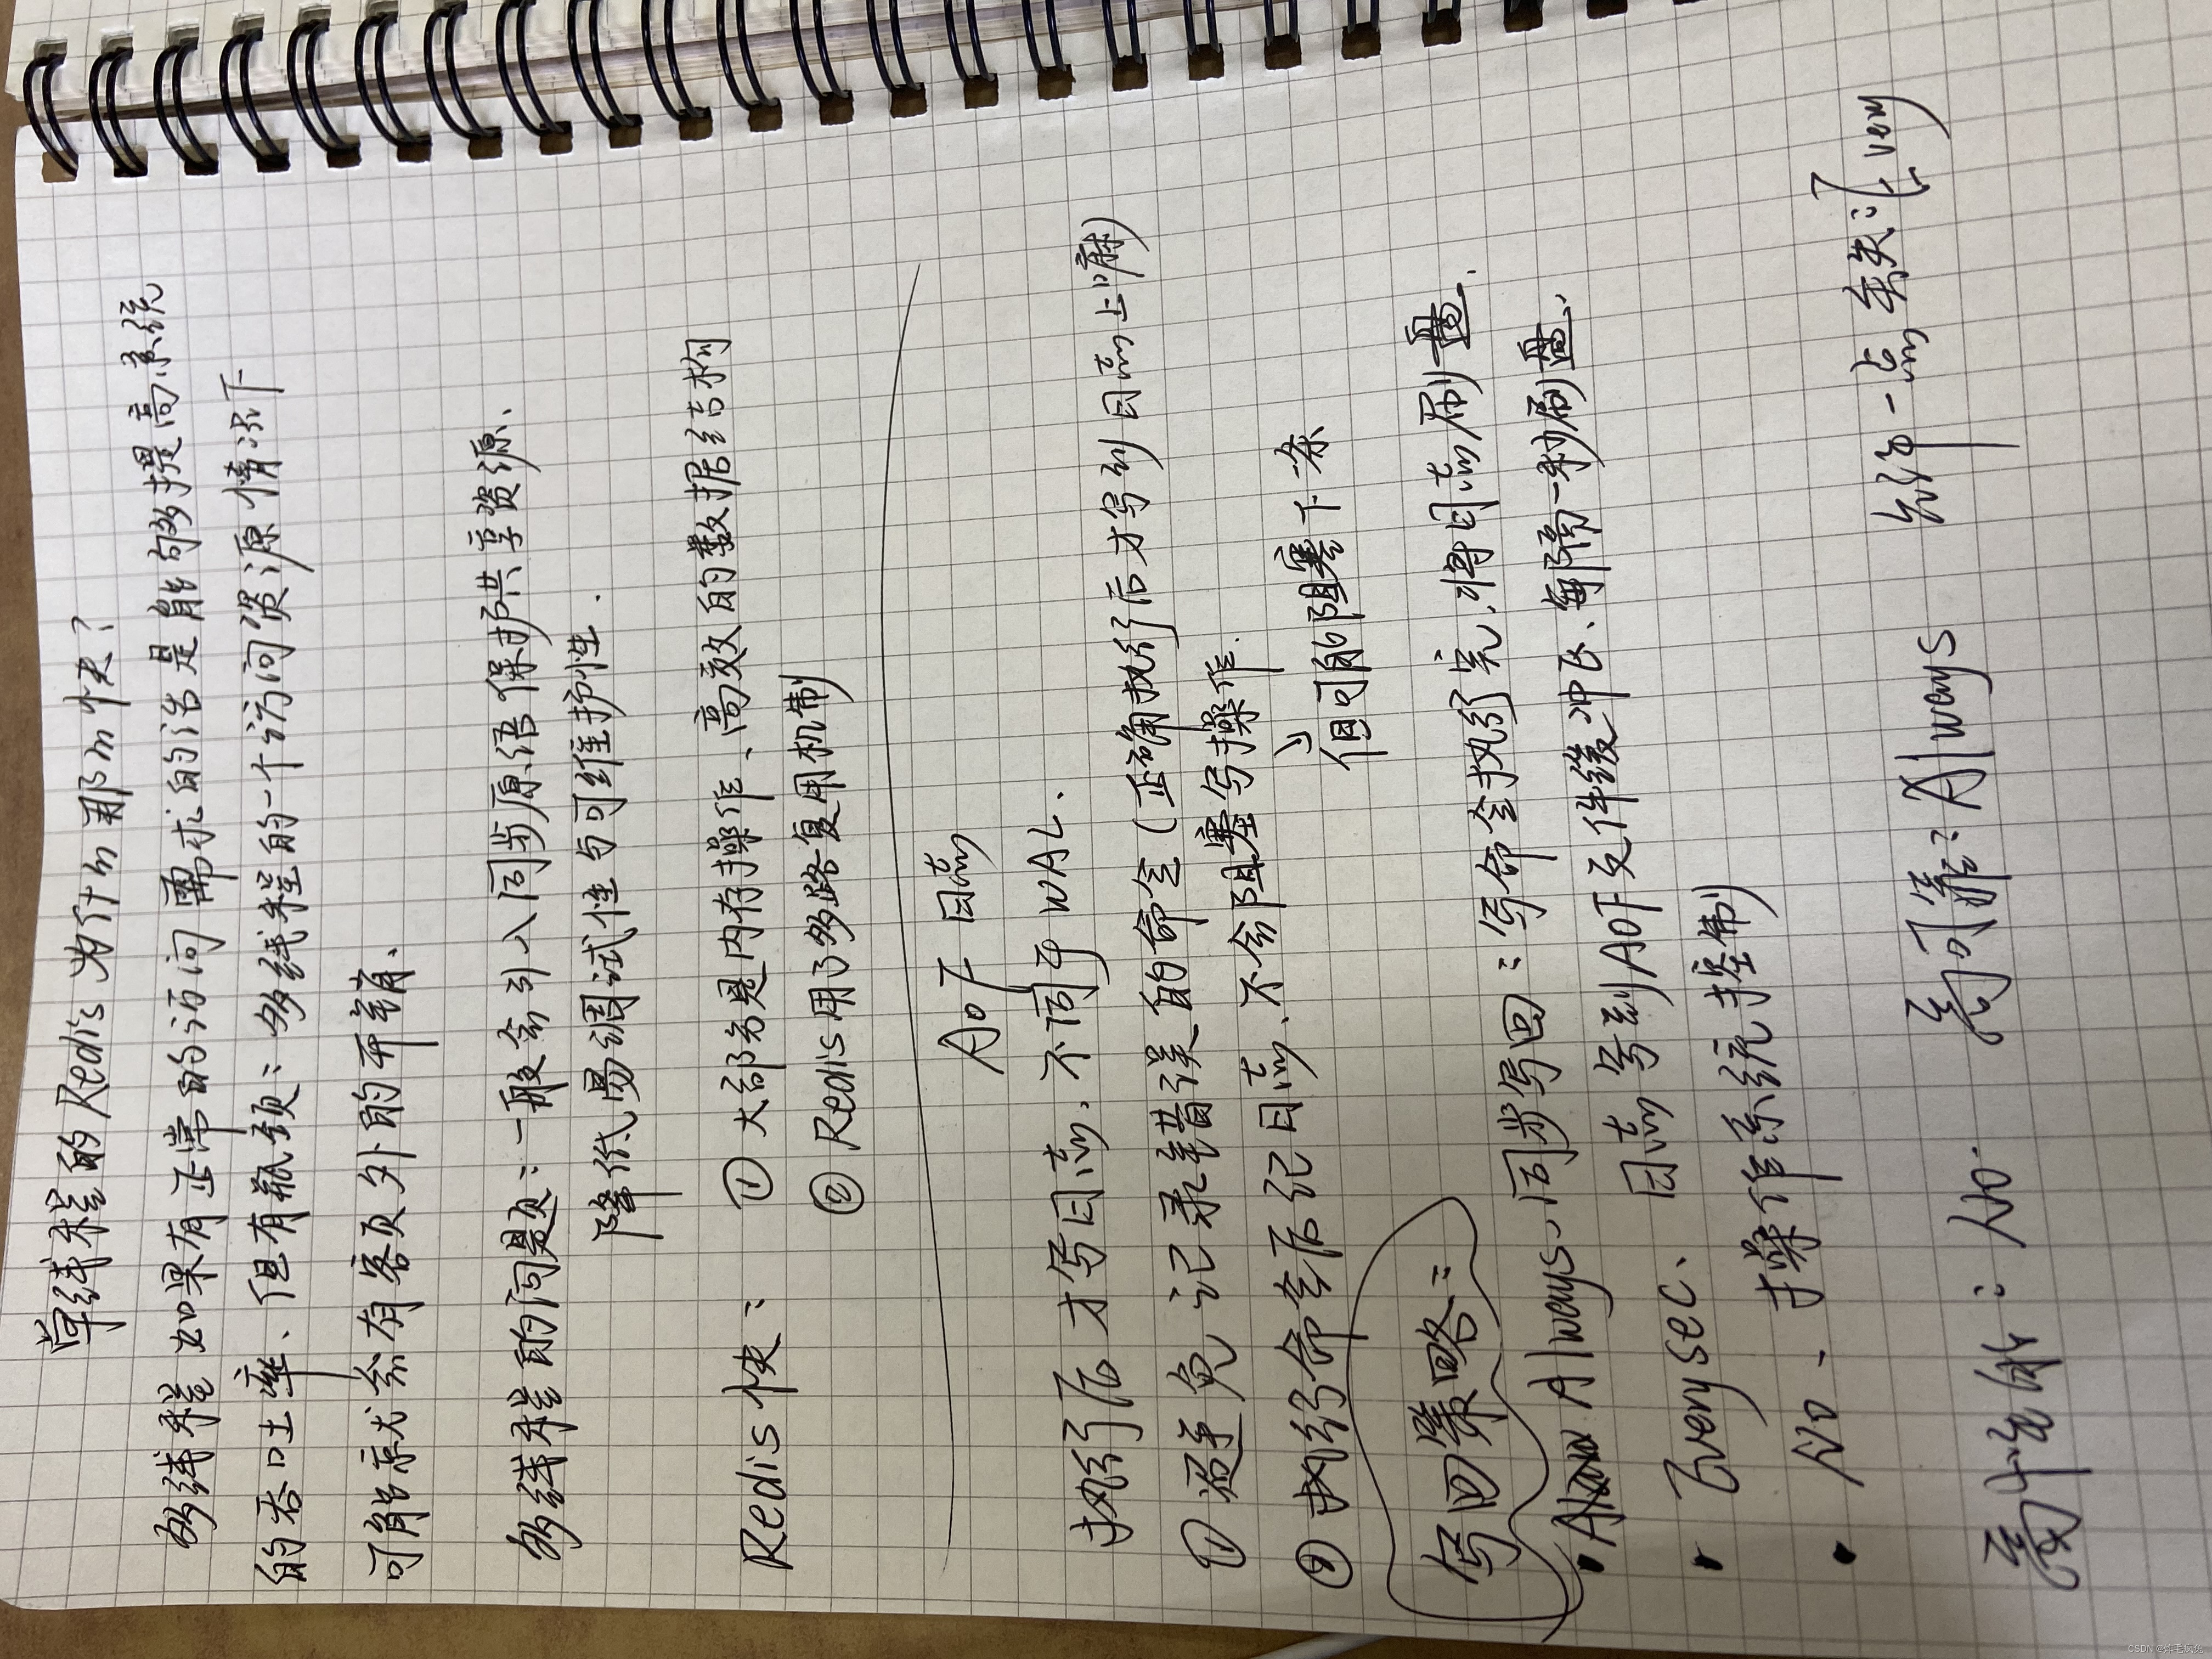 单线程的Redis为什m那m快?
多线程如果有正常的访问需求的话是能够提高系统
的吞吐率、但有瓶颈:多线程的一个访问资源情况下
可能就会有客页外的开销、
多线程的问题:一般会引入同步原语保护共享资源、
降低易调试性与可维护性.
Redis快: ① 大部分是内存操作、高效的数据结构
② Redis用了多路复用机制
AOF 日志
执行后才写日志、不同于WAL、
① 避免记录错误的命令(正确执行后才写到日志上嘛)
② 执行命令后记日志、不会阻塞写操作.
但可能阻塞下一条
写回策略:
• Always、同步写回:写命令执行完、将日志刷盘.
• Everysec、日志写到AOF文件缓冲区、每隔一秒刷盘、
• No、操作系统控制
高性能:No. 高可靠:Always 允许一点丢失:Every
CSDN